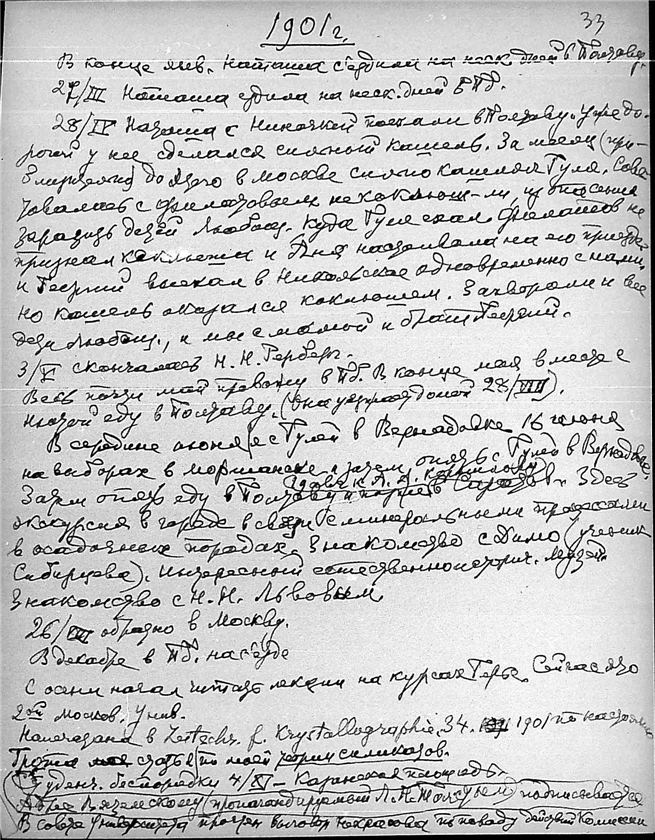 33
1901 г.
В конце янв. Наташа ездила на неск. дней в Полтаву.
27/III Наташа ездила на неск. дней в Пб.
28/IV Наташа с Ниночкой поехали в Полтаву. Уже до-
рогой у нее сделался сильный кашель. За месяц (при-
близительно) до этого в Москве сильно кашлял Гуля. Сове-
товалась с Филатовым не коклюш-ли, из опасения
заразить детей Любощ. куда Гуля ехал. Филатов не
признал коклюша и Аня настаивала на его приезде
и Георгий выехал в Никольское одновременно с нами
но кашель оказался коклюшем. Захворали и все
дети Любощ., и мы с мамой и брат Георгий.
3/V скончалась Н. Н. Герберг.
Весь почти май провожу в Пб. В конце мая вместе с
Ниночкой еду в Полтаву. (Она уехала домой 28/VIII).
В середине июня я с Гулей в Вернадовке 16 июня
на выборах в Моршанске, а затем опять с Гулей в Вернадовке.
Затем опять еду в Полтаву и Саратов. Здесь
экскурсия в городе в связи с минеральными процессами
в осадочных породах. Знакомство с Димо (ученик
Сибирцева). Интересный естественноисторич. музей.
Знакомство с Н. Н. Львовым.
26/VIII обратно в Москву.
В декабре в Пб. на съезде
С осени начал читать лекции на курсах Герье. Сейчас это
2ой Москов. Унив.
Напечатана в Zeitschr. f. Krystallographie. 34. 1901 по настоянию
Грота моя статья по моей теории силикатов.
Студенч. беспорядки 4/III – Казанская площадь.
Адрес Вяземскому (пропагандируемый Л. Н. Толстым) подписывается
В совете университета прочтен выговор Некрасова по поводу действий Комиссии